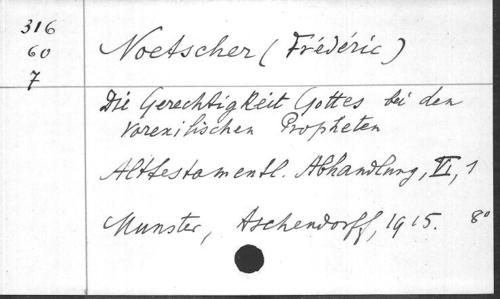 316
60
7
Noetscher (Frédéric)
Die Gerechtigkeit Gottes bei den
vorexilischen Propheten
Alttestamentl. Abhandlung, VI, 1
Munster, Aschendorff, 1915. 8°